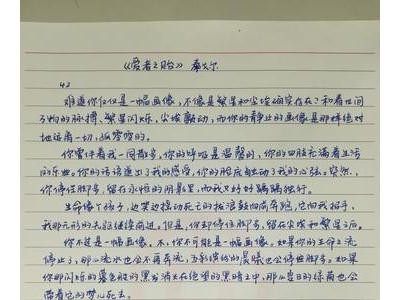 《爱者之贻》 泰戈尔
42
难道你仅仅是一幅画像，不像是繁星和尘埃确实存在？和着世间
万物的脉搏，繁星闪烁，尘埃颤动，而你的静止的画像是那样绝对
地远离一切，孤零零的。
你曾伴着我一同散步，你的呼吸是温馨的，你的四肢充满着生活
的乐曲。你的话语道出了我的感受，你的脸庞触动了我的心弦。突然，
你停住脚步，留在永恒的阴影里，而我只好踽踽独行。
生命像个孩子，边笑边摇动死亡的拨浪鼓向前奔跑，它向我招手，
我那无形的先驱继续前进。但是，你却停住脚步，留在尘埃和繁星之后，
你不过是一幅画像。不，你不可能是一幅画像。如果你的生命之流
停止了，那么流水也会不再奔流，五彩缤纷的晨曦也会停住脚步。如果
你那闪烁的暮色般的黑发消失在绝望的黑暗之中，那么夏日的绿荫也会
带着它的梦儿死去。